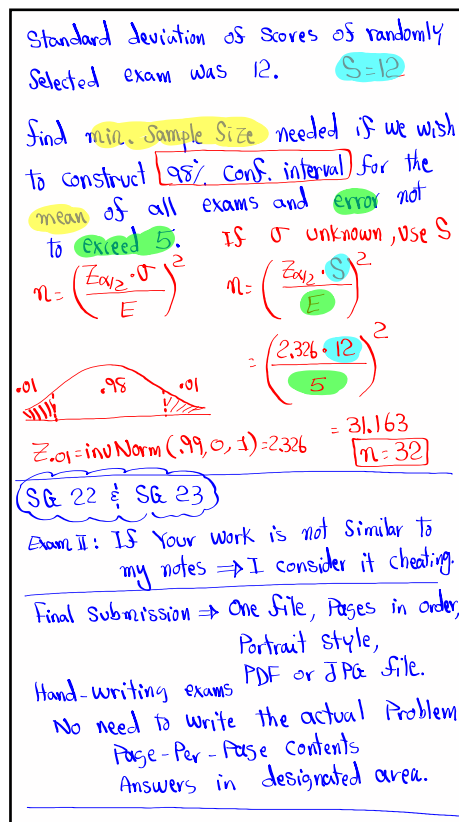 Standard deviation of Scores of randomly
Selected exam was 12. S=12
find min. Sample Size needed if we wish
to construct 98% Conf. interval for the
mean of all exams and error not
to exceed 5. If σ unknown, Use S
n = (Zα/2 · σ / E)² n = (Zα/2 · S / E)²
= (2.326 · 12 / 5)²
.01 .98 .01
= 31.163
Z.01 = invNorm(.99, 0, 1) = 2.326 n = 32
SG 22 & SG 23
Exam II: If Your work is not Similar to
my notes ⇒ I consider it cheating.
Final Submission ⇒ One file, Pages in order,
Portrait Style,
PDF or JPG file.
Hand-writing exams
No need to write the actual Problem
Page-Per-Page Contents
Answers in designated area.